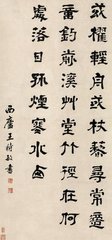 或櫂輕舟或杖藜尋常適
意釣前溪草堂竹徑在何
處落日孤煙寒渚西
西廬王時敏書